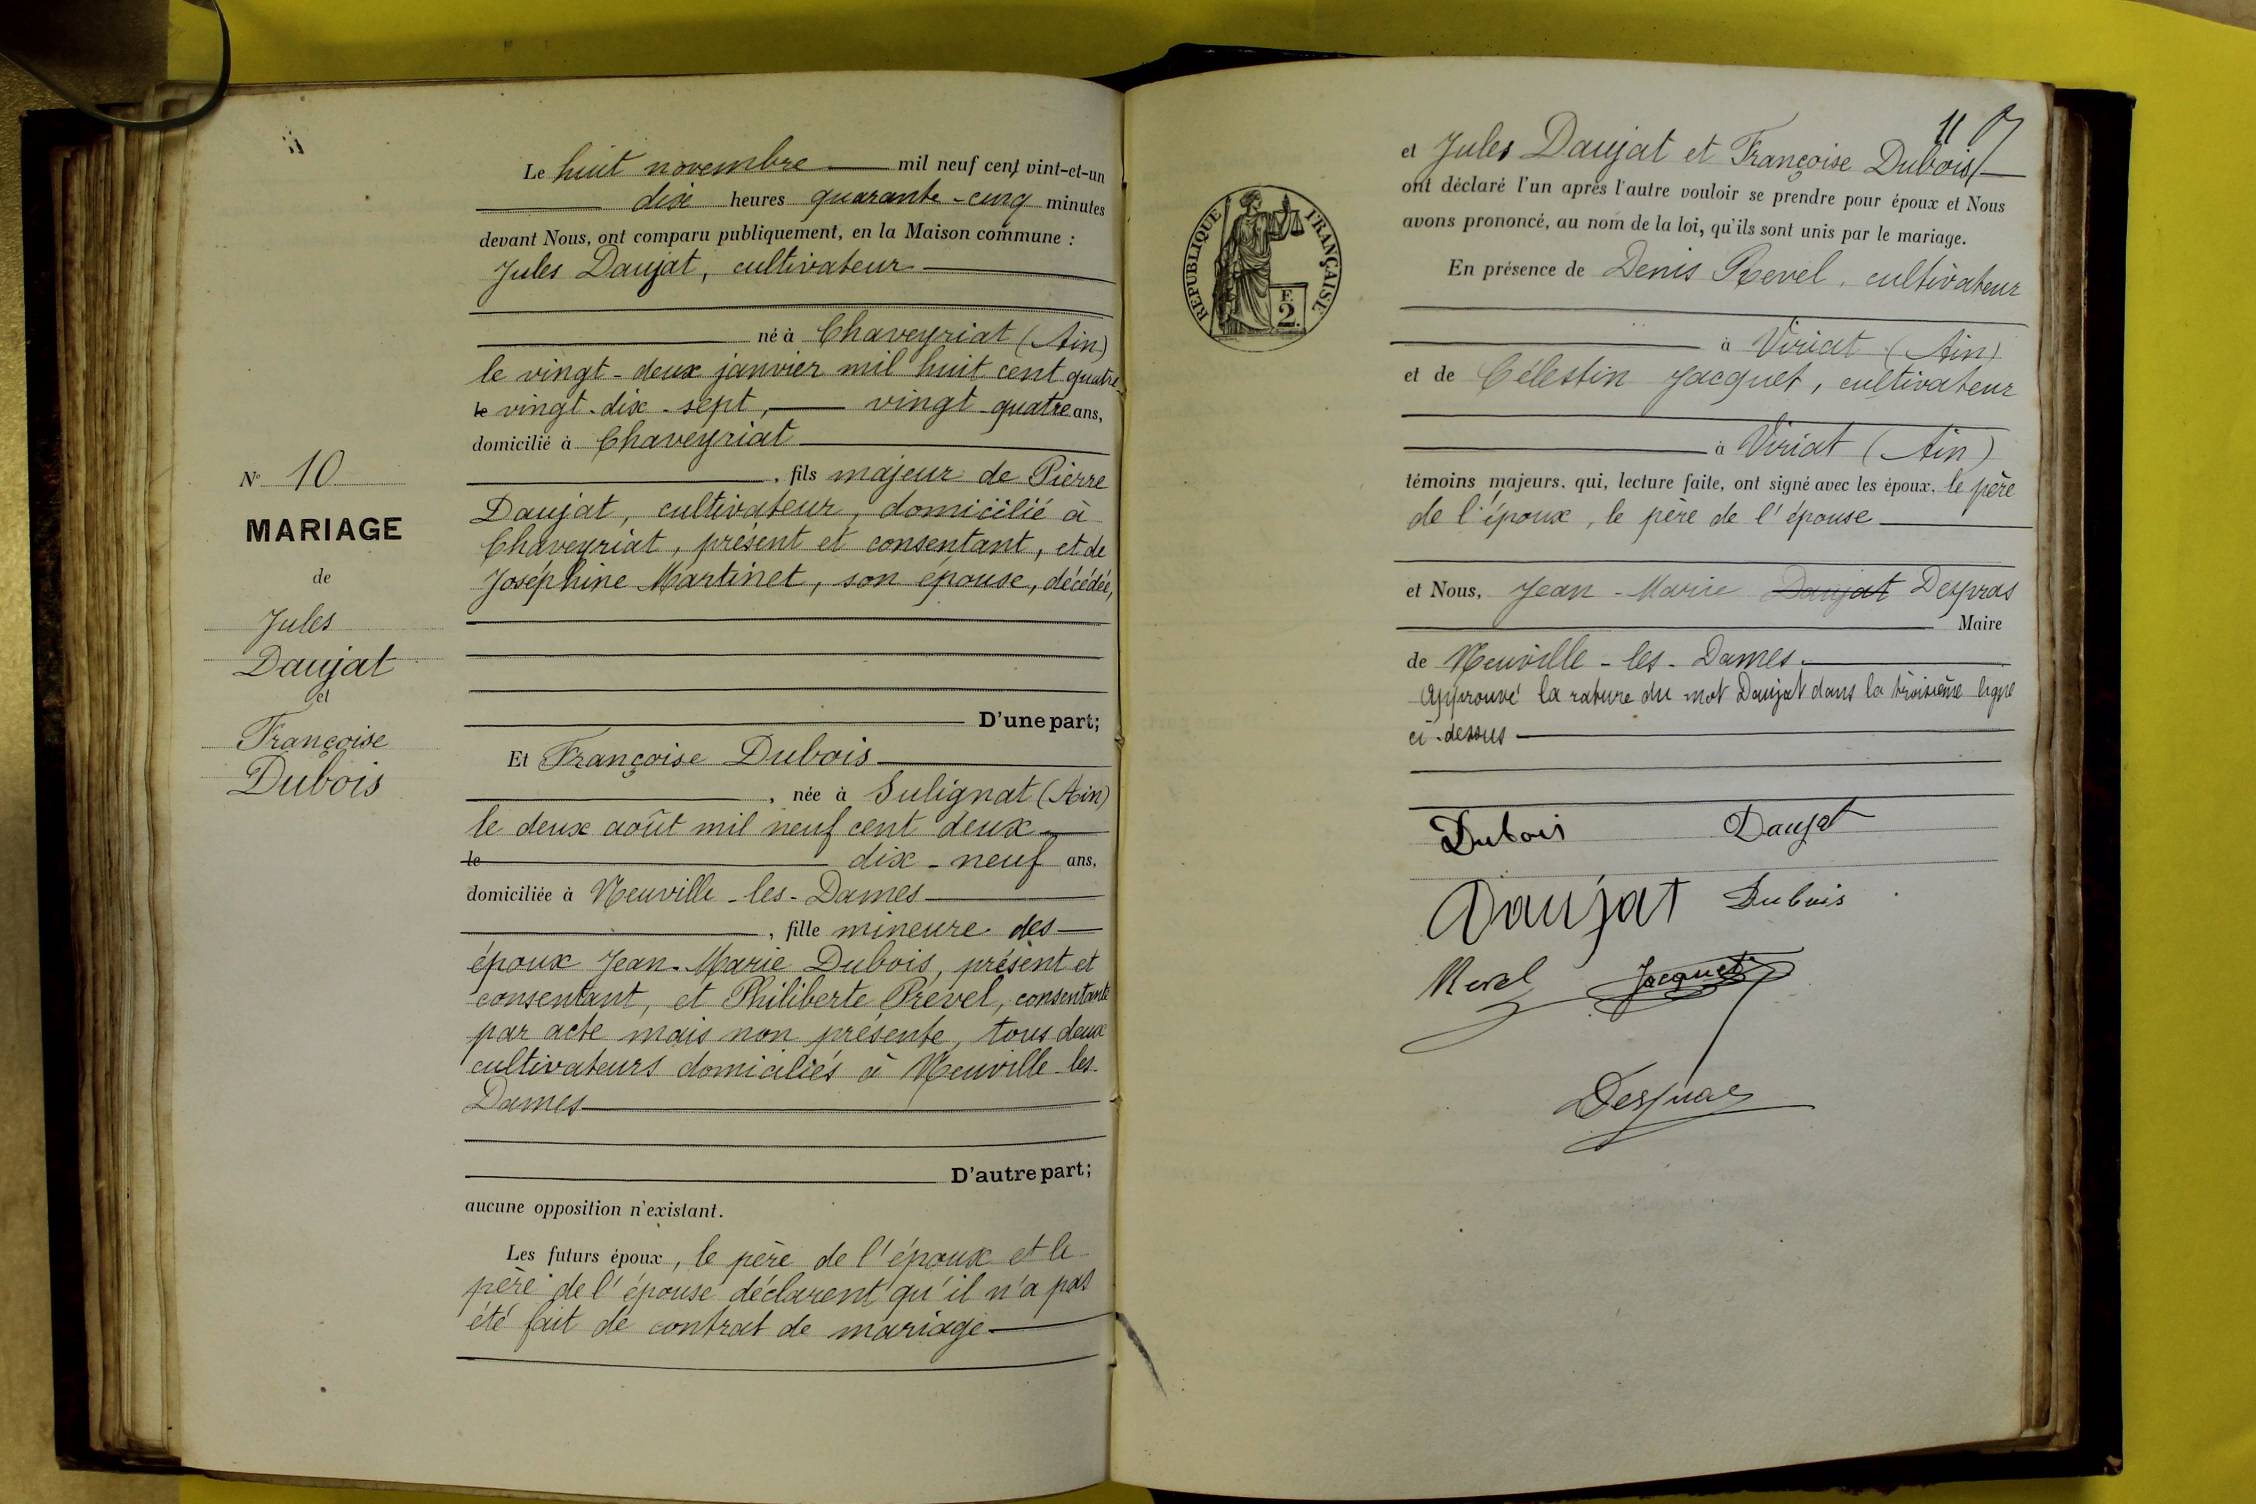 Le huit novembre mil neuf cent vint-et-un
dix heures quarante-cinq minutes
devant Nous, ont comparu publiquement, en la Maison commune :
Jules Daujat, cultivateur
né à Chaveyriat (Ain)
le vingt-deux janvier mil huit cent quatre
le vingt-dix-sept, vingt-quatre ans,
domicilié à Chaveyriat
, fils majeur de Pierre
Daujat, cultivateur, domicilié à
Chaveyriat, présent et consentant, et de
Joséphine Martinet, son épouse, décédée,
D'une part;
Et Françoise Dubois
, née à Sulignat (Ain)
le deux août mil neuf cent deux
le dix-neuf ans,
domiciliée à Neuville-les-Dames
, fille mineure des
époux Jean-Marie Dubois, présent et
consentant, et Philiberte Revel, consentante
par acte mais non présente, tous deux
cultivateurs domiciliés à Neuville-les-
Dames
D'autre part;
aucune opposition n'existant.
Les futurs époux, le père de l'époux et le
père de l'épouse déclarent qu'il n'a pas
été fait de contrat de mariage
N° 10
MARIAGE
de
Jules
Daujat
et
Françoise
Dubois
11
et Jules Daujat et Françoise Dubois
ont déclaré l'un après l'autre vouloir se prendre pour époux et Nous
avons prononcé, au nom de la loi, qu'ils sont unis par le mariage.
En présence de Denis Revel, cultivateur
à Viriat (Ain)
et de Célestin Jacquet, cultivateur
à Viriat (Ain)
témoins majeurs. qui, lecture faite, ont signé avec les époux, le père
de l'époux, le père de l'épouse
et Nous, Jean-Marie Daujat Despras
Maire
de Neuville-les-Dames.
Approuvé la rature du mot Daujat dans la troisième ligne
ci-dessus
RÉPUBLIQUE FRANÇAISE
F.
2.
Dubois Daujat
Daujat Dubois
Revel Jacquet
Despras